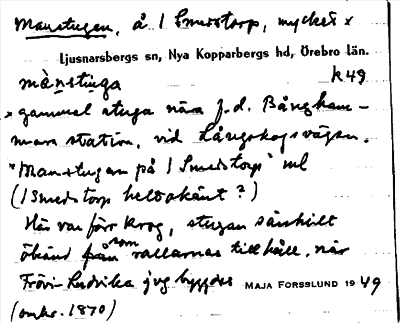 Manstugan, å 1 Smedstorp, mycket x
Ljusnarsbergs sn, Nya Kopparbergs hd, Örebro län.
mànstuga k 49
x gammal stuga nära f.d. Bångham-
mars station, vid Långskogsvägen.
"Manstugan på 1 Smedstorp" ml
(1 Smedstorp helt okänt?)
Här var förr krog, stugan särskilt
ökänd från som rallarnas tillhåll, när
Frövi-Ludvika jvg byggdes MAJA FORSSLUND 1949
(omkr. 1870)